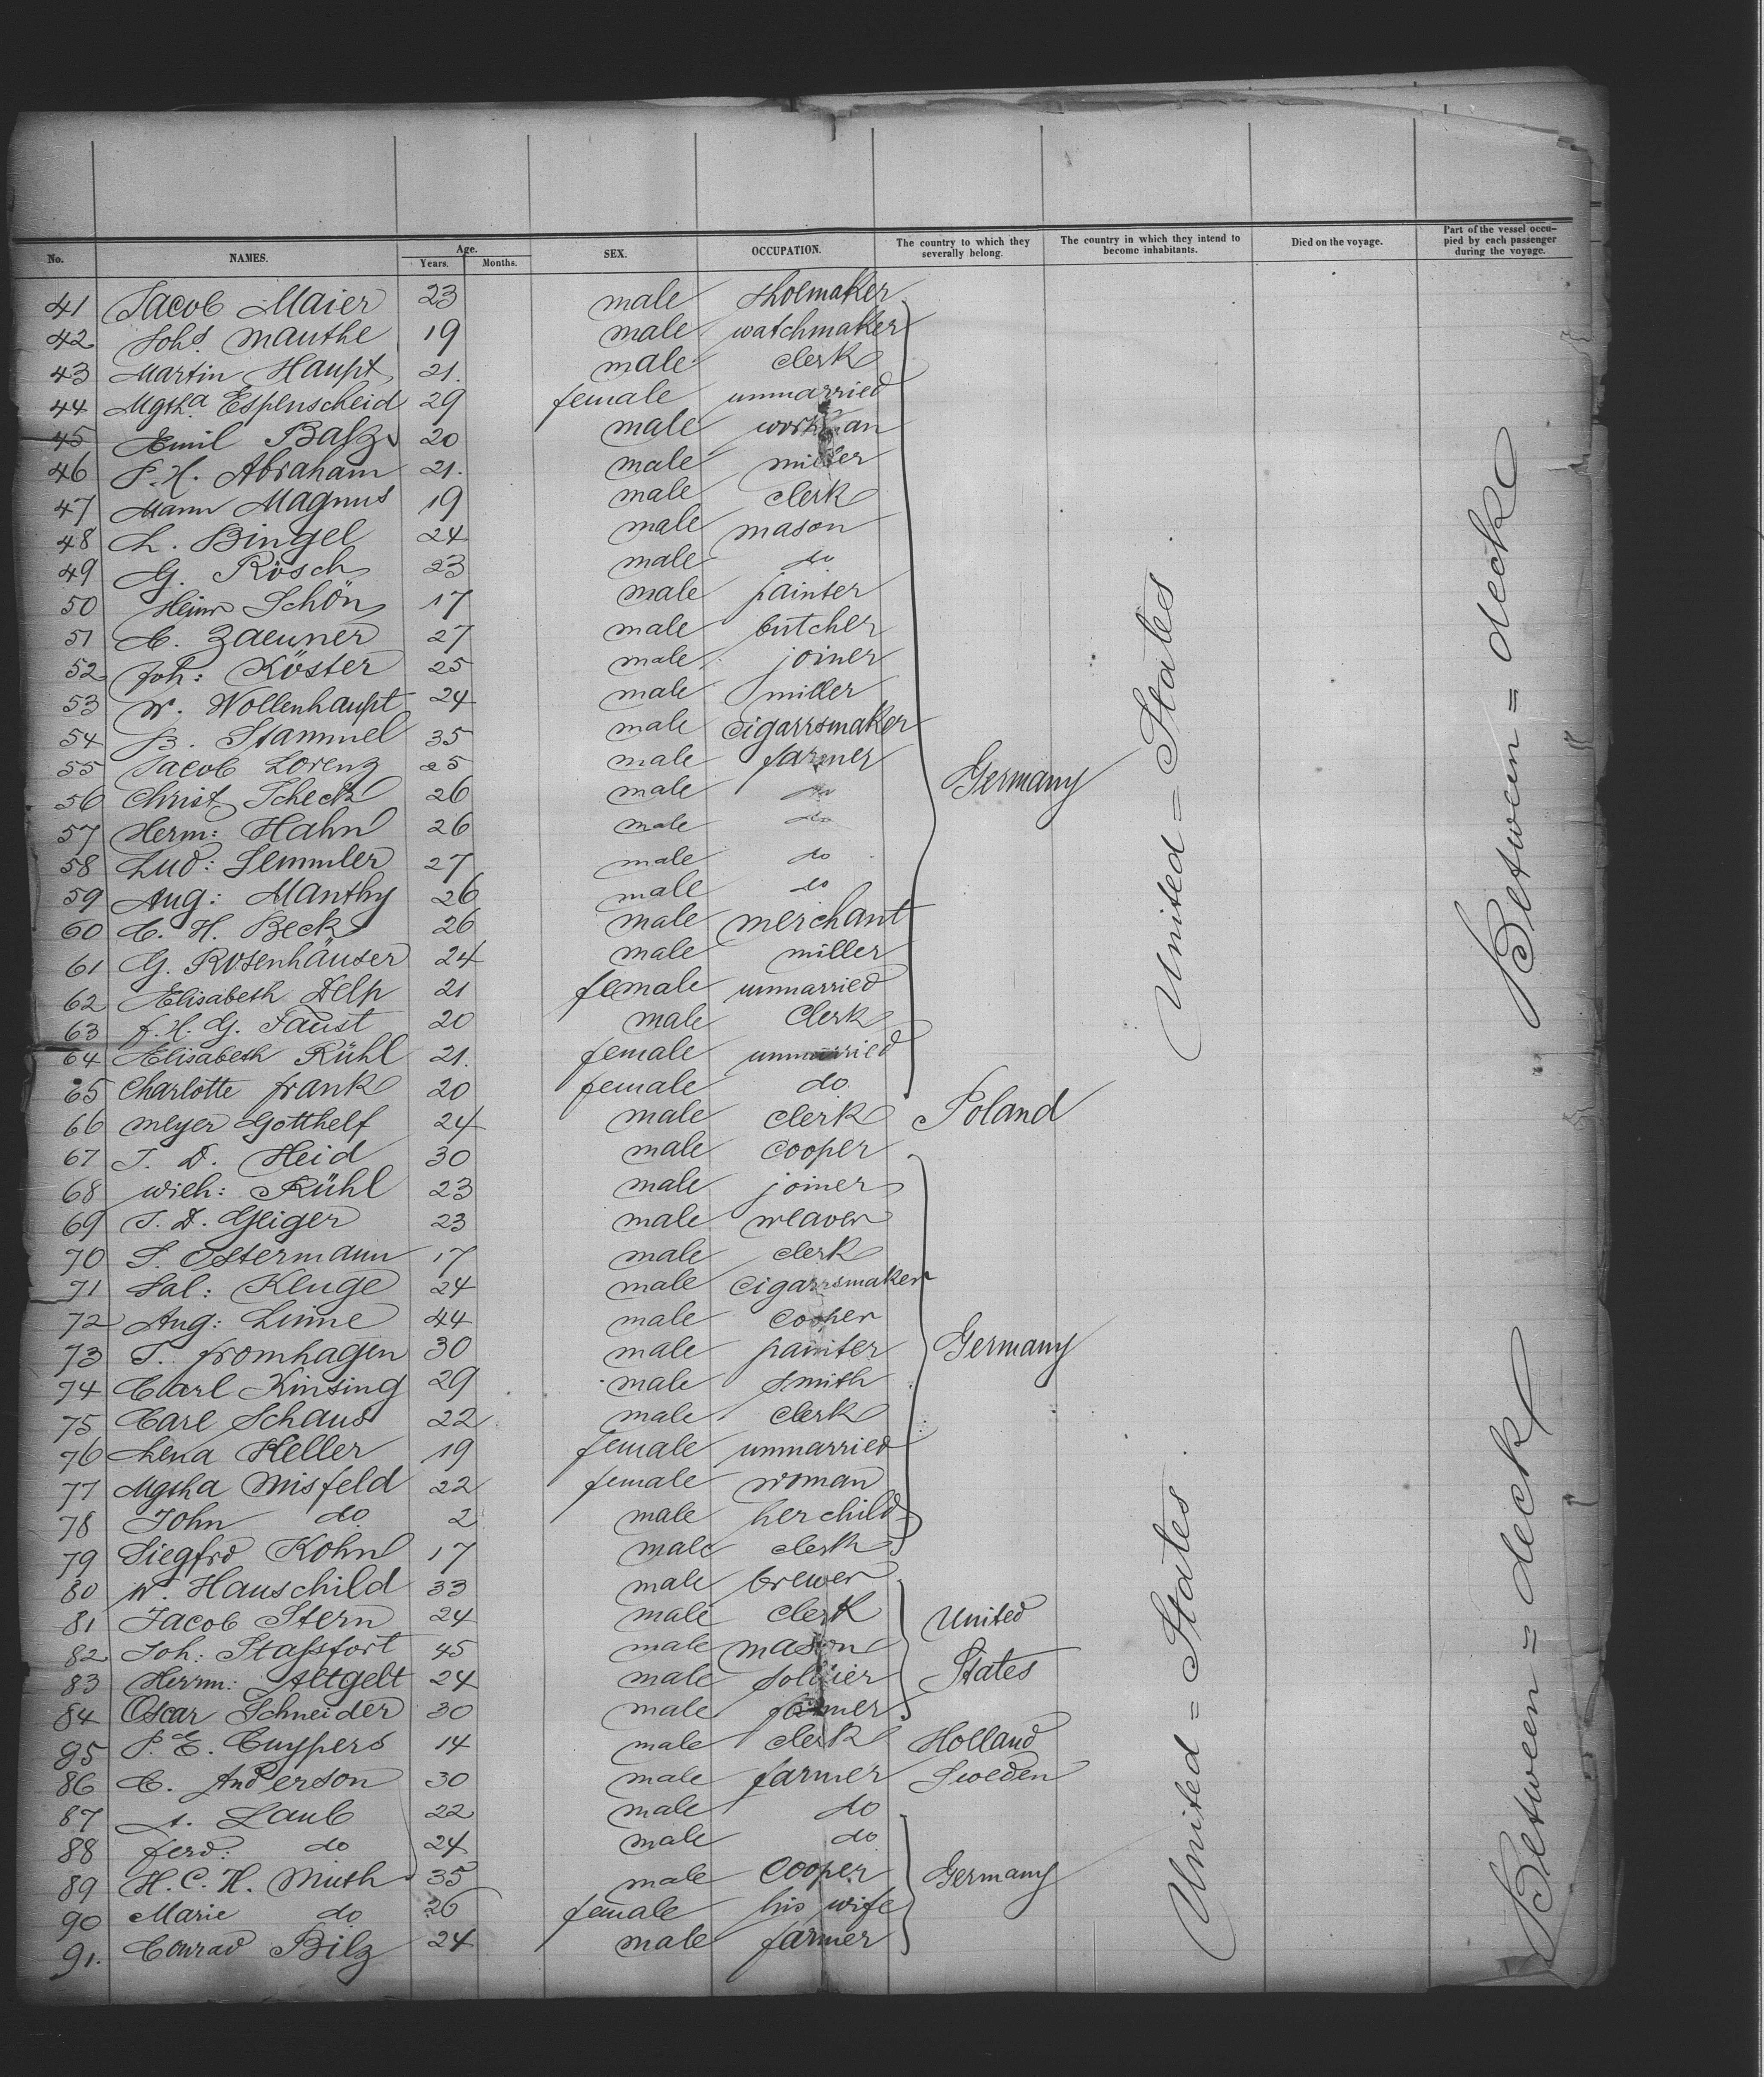 No. NAMES. Age. Years. Months. SEX. OCCUPATION. The country to which they severally belong. The country in which they intend to become inhabitants. Died on the voyage. Part of the vessel occupied by each passenger during the voyage.
41 Jacob Maier 23 male shoemaker
42 Johs Mauthe 19 male watchmaker
43 Martin Haupt 21. male clerk
44 Mgtha Espenscheid 29 female unmarried
45 Emil Baſz 20 male workman
46 P. H. Abraham 21. male miller
47 Mann Magnus 19 male clerk
48 L. Bingel 24 male mason
49 G. Rösch 23 male do
50 Heinr Schön 17 male painter
51 C. Zaeuner 27 male butcher
52 Joh: Köster 25 male joiner
53 W. Wollenhaupt 24 male miller
54 B. Stammel 35 male cigarrsmaker
55 Jacob Lorenz 25 male farmer Germany
56 Christ Scheck 26 male do
57 Herm: Hahn 26 male do
58 Lud: Semmler 27 male do
59 Aug: Manthy 26 male do
60 C. H. Beck 26 male merchant
61 G. Rosenhäuser 24 male miller
62 Elisabeth Delp 21 female unmarried
63 F. H. G. Faust 20 male Clerk
64 Elisabeth Rühl 21. female unmarried
65 Charlotte Frank 20 female do
66 Meyer Gotthelf 24 male clerk Poland
67 J. D. Heid 30 male cooper
68 Wilh: Rühl 23 male joiner
69 J. D. Geiger 23 male weaver
70 S. Ostermann 17 male clerk
71 Sal: Kluge 24 male cigarrsmaker
72 Aug: Linne 44 male cooper
73 J. Fromhagen 30 male painter Germany
74 Carl Kinsing 29 male smith
75 Carl Schaus 22 male clerk
76 Lena Heller 19 female unmarried
77 Mgtha Misfeld 22 female woman
78 John do 2 male her child
79 Siegfrd Kohn 17 male clerk
80 W. Hauschild 33 male brewer
81 Jacob Stern 24 male clerk United
82 Joh: Staſsfort 45 male mason
83 Herrm: Altgelt 24 male soldier States
84 Oscar Schneider 30 male farmer
85 P. E. Cuypers 14 male clerk Holland
86 C. Anderson 30 male farmer Sweden
87 A. Laub 22 male do
88 Ferd: do 24 male do
89 H. C. H. Muth 35 male cooper Germany
90 Marie do 26 female his wife
91. Conrad Bilz 24 male farmer
United = States
Between = deck
United = States
Between = deck